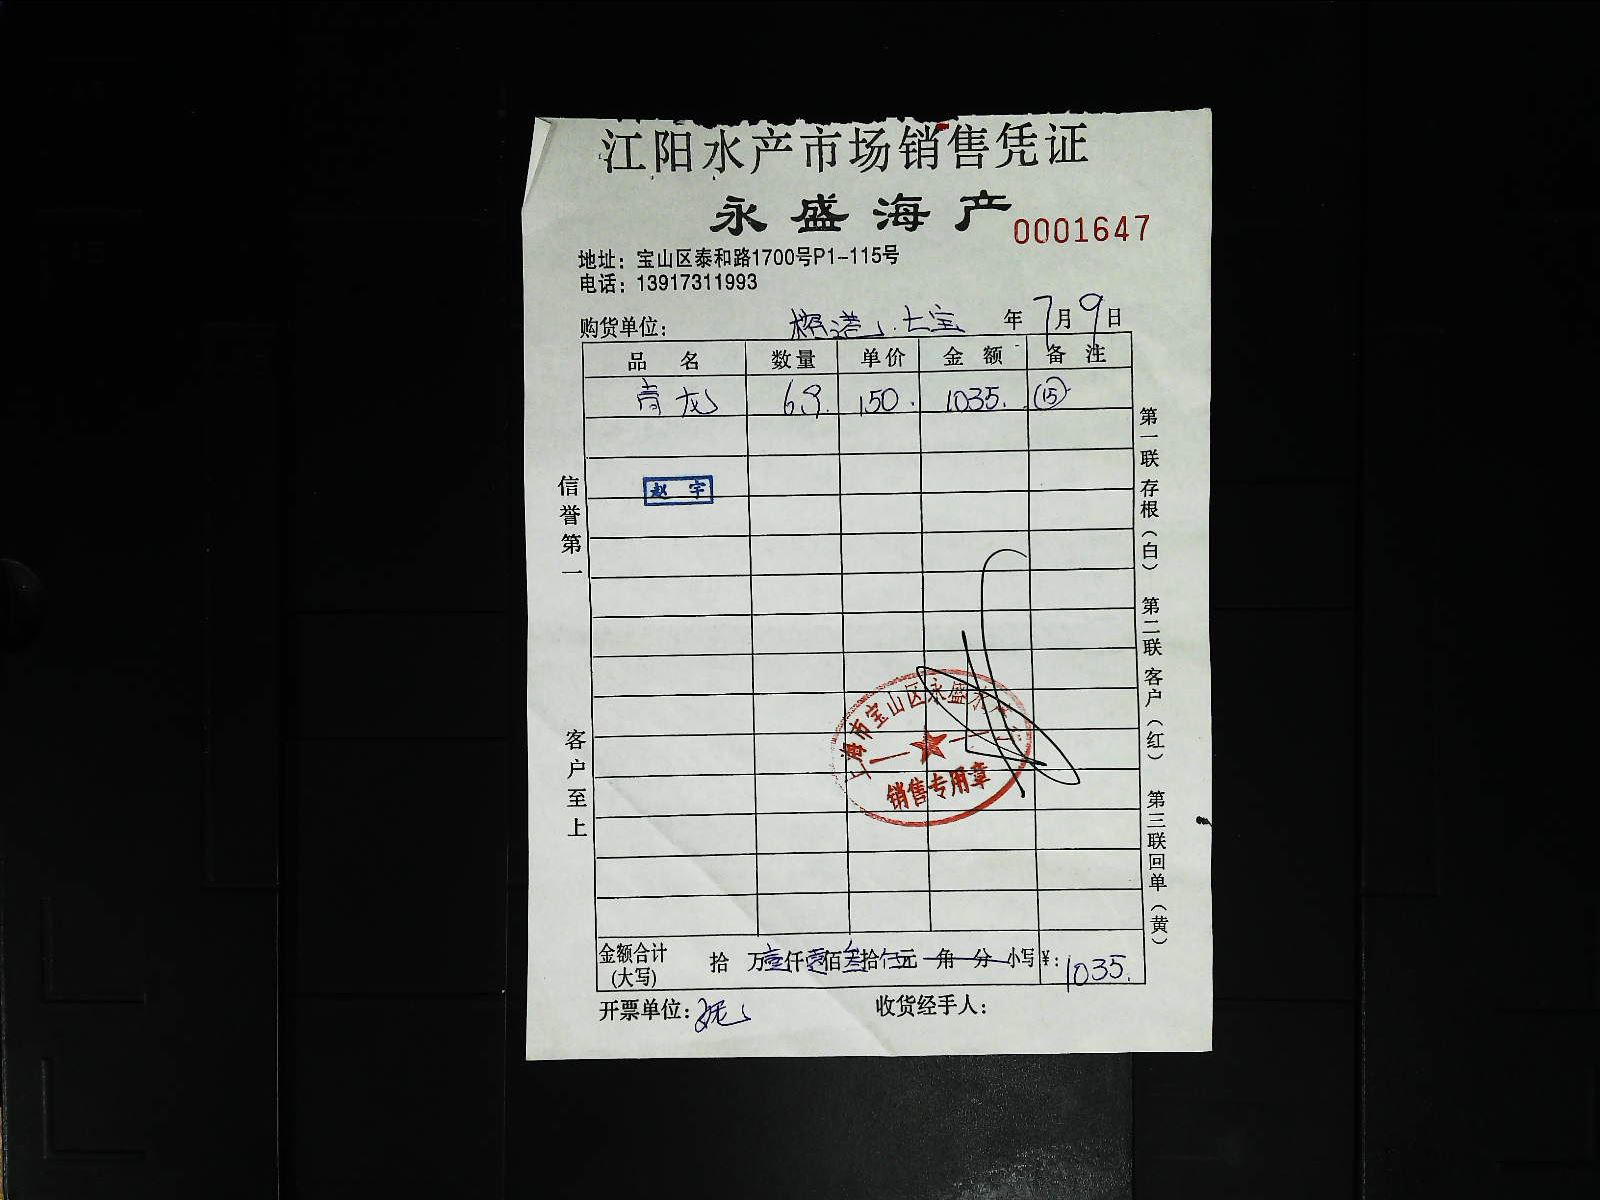 江阳水产市场销售凭证
永盛海产
0001647
地址：宝山区泰和路1700号P1-115号
电话：13917311993
购货单位： 七宝 年7月9日
品 名 数量 单价 金 额 备 注
青龙 6.9 150. 1035. ⑮
赵 宇
信誉第一
客户至上
第一联 存根（白） 第二联 客户（红） 第三联 回单（黄）
上海市宝山区永盛水产行
销售专用章
金额合计
(大写)
拾 万壹仟零佰叁拾伍元 角 分 小写¥：1035.
开票单位：
收货经手人：